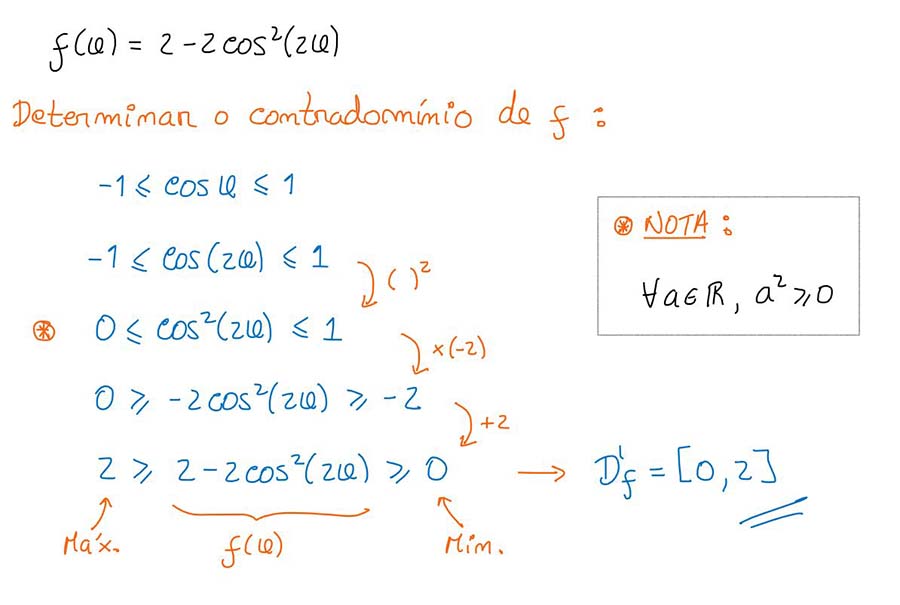 f(x) = 2 - 2cos²(2x)
Determinar o contradomínio de f :
-1 ⩽ cos x ⩽ 1
-1 ⩽ cos(2x) ⩽ 1
( )²
⊛ 0 ⩽ cos²(2x) ⩽ 1
×(-2)
0 ⩾ -2cos²(2x) ⩾ -2
+2
2 ⩾ 2-2cos²(2x) ⩾ 0 → D'f = [0,2]
Máx. f(x) Mim.
⊛ NOTA :
∀a∈ℝ, a² ⩾ 0